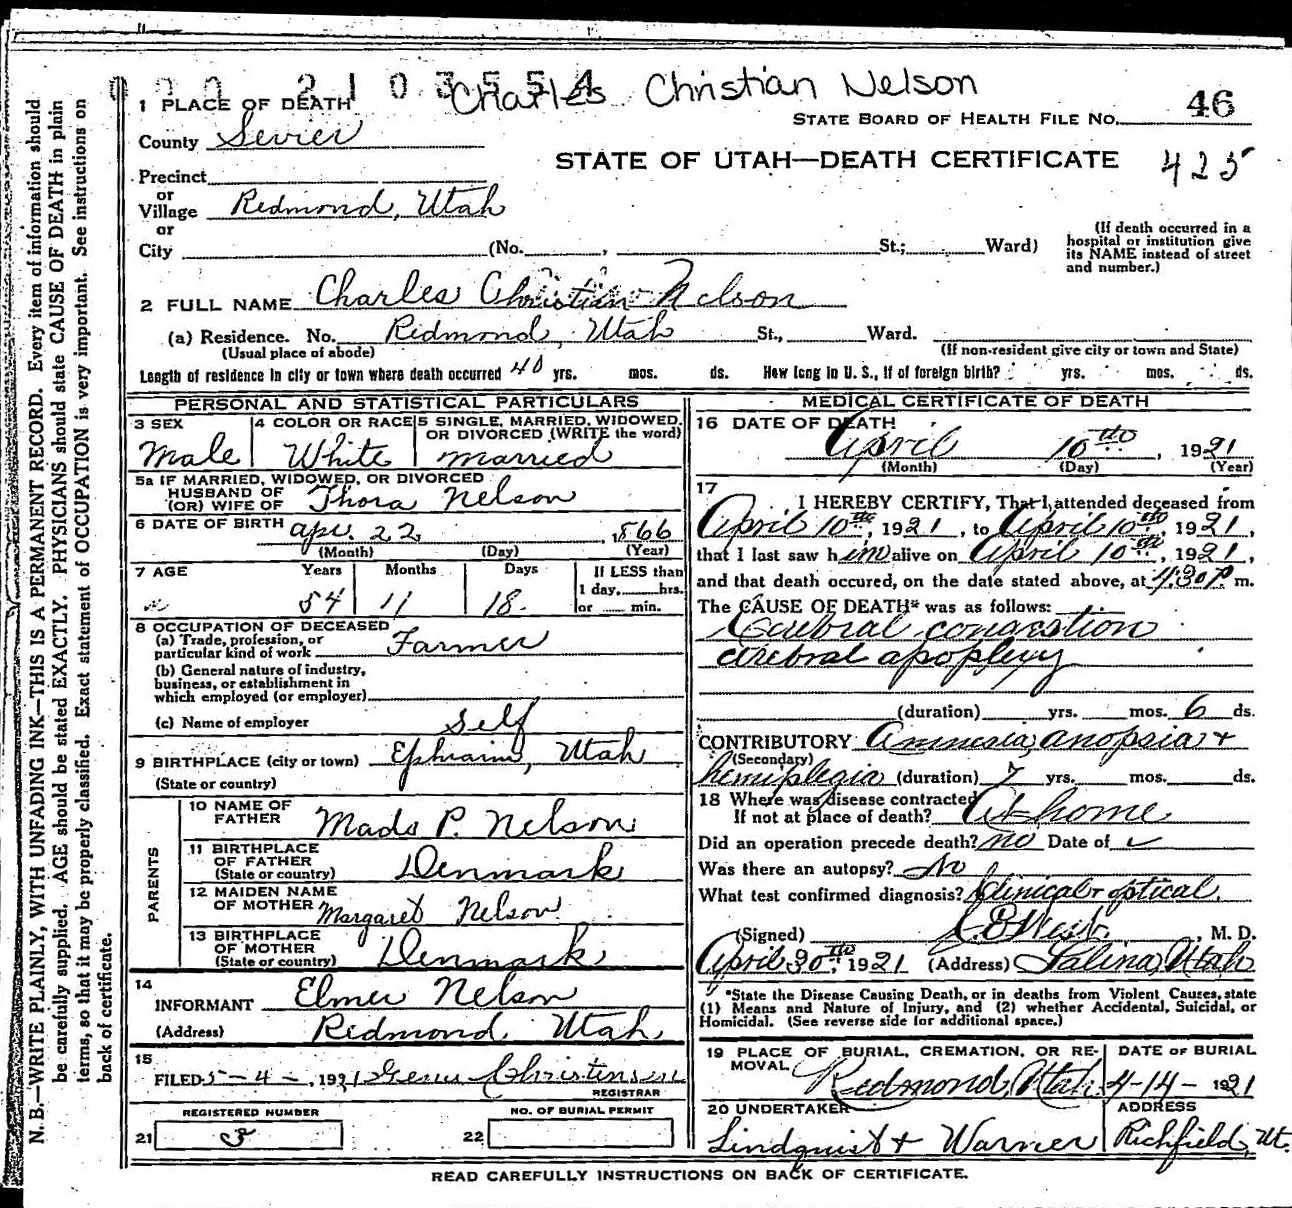 2103554
Charles Christian Nelson
1 PLACE OF DEATH
STATE BOARD OF HEALTH FILE NO. 46
County Sevier
STATE OF UTAH—DEATH CERTIFICATE 425
Precinct
or
Village Redmond, Utah
or
City (No. , St.; Ward)
(If death occurred in a
hospital or institution give
its NAME instead of street
and number.)
2 FULL NAME Charles Christian Nelson
(a) Residence. No. Redmond, Utah St., Ward.
(Usual place of abode) (If non-resident give city or town and State)
Length of residence in city or town where death occurred 40 yrs. mos. ds. How long in U. S., if of foreign birth? yrs. mos. ds.
PERSONAL AND STATISTICAL PARTICULARS
3 SEX Male
4 COLOR OR RACE White
5 SINGLE, MARRIED, WIDOWED,
OR DIVORCED (WRITE the word)
married
5a IF MARRIED, WIDOWED, OR DIVORCED
HUSBAND OF
(OR) WIFE OF Thora Nelson
6 DATE OF BIRTH apr. 22, 1866
(Month) (Day) (Year)
7 AGE Years Months Days If LESS than
1 day, hrs.
or min.
54 11 18
8 OCCUPATION OF DECEASED
(a) Trade, profession, or
particular kind of work Farmer
(b) General nature of industry,
business, or establishment in
which employed (or employer)
(c) Name of employer Self
9 BIRTHPLACE (city or town) Ephraim, Utah
(State or country)
PARENTS
10 NAME OF
FATHER Mads P. Nelson
11 BIRTHPLACE
OF FATHER
(State or country) Denmark
12 MAIDEN NAME
OF MOTHER Margaret Nelson
13 BIRTHPLACE
OF MOTHER
(State or country) Denmark
14
INFORMANT Elmer Nelson
(Address) Redmond Utah
15
FILED 5-4-, 1921 Christensen
REGISTRAR
REGISTERED NUMBER
21 3
NO. OF BURIAL PERMIT
22
MEDICAL CERTIFICATE OF DEATH
16 DATE OF DEATH
April 10th, 1921
(Month) (Day) (Year)
17
I HEREBY CERTIFY, That I attended deceased from
April 10th, 1921, to April 10th, 1921,
that I last saw him alive on April 10th, 1921,
and that death occured, on the date stated above, at 4:30 P. m.
The CAUSE OF DEATH* was as follows:
Cerebral congestion
cerebral apoplexy
(duration) yrs. mos. 6 ds.
CONTRIBUTORY Amnesia, anopsia +
(Secondary)
hemiplegia (duration) 7 yrs. mos. ds.
18 Where was disease contracted
If not at place of death? At home
Did an operation precede death? no Date of
Was there an autopsy? No
What test confirmed diagnosis? Clinical + optical.
(Signed) , M. D.
April 30th, 1921 (Address) Salina, Utah
*State the Disease Causing Death, or in deaths from Violent Causes, state
(1) Means and Nature of Injury, and (2) whether Accidental, Suicidal, or
Homicidal. (See reverse side for additional space.)
19 PLACE OF BURIAL, CREMATION, OR RE-
MOVAL Redmond, Utah
DATE OF BURIAL
4-14- 1921
20 UNDERTAKER
Lindquist + Warner
ADDRESS
Richfield, Ut.
READ CAREFULLY INSTRUCTIONS ON BACK OF CERTIFICATE.
N. B.—WRITE PLAINLY, WITH UNFADING INK—THIS IS A PERMANENT RECORD. Every item of information should
be carefully supplied. AGE should be stated EXACTLY. PHYSICIANS should state CAUSE OF DEATH in plain
terms, so that it may be properly classified. Exact statement of OCCUPATION is very important. See instructions on
back of certificate.